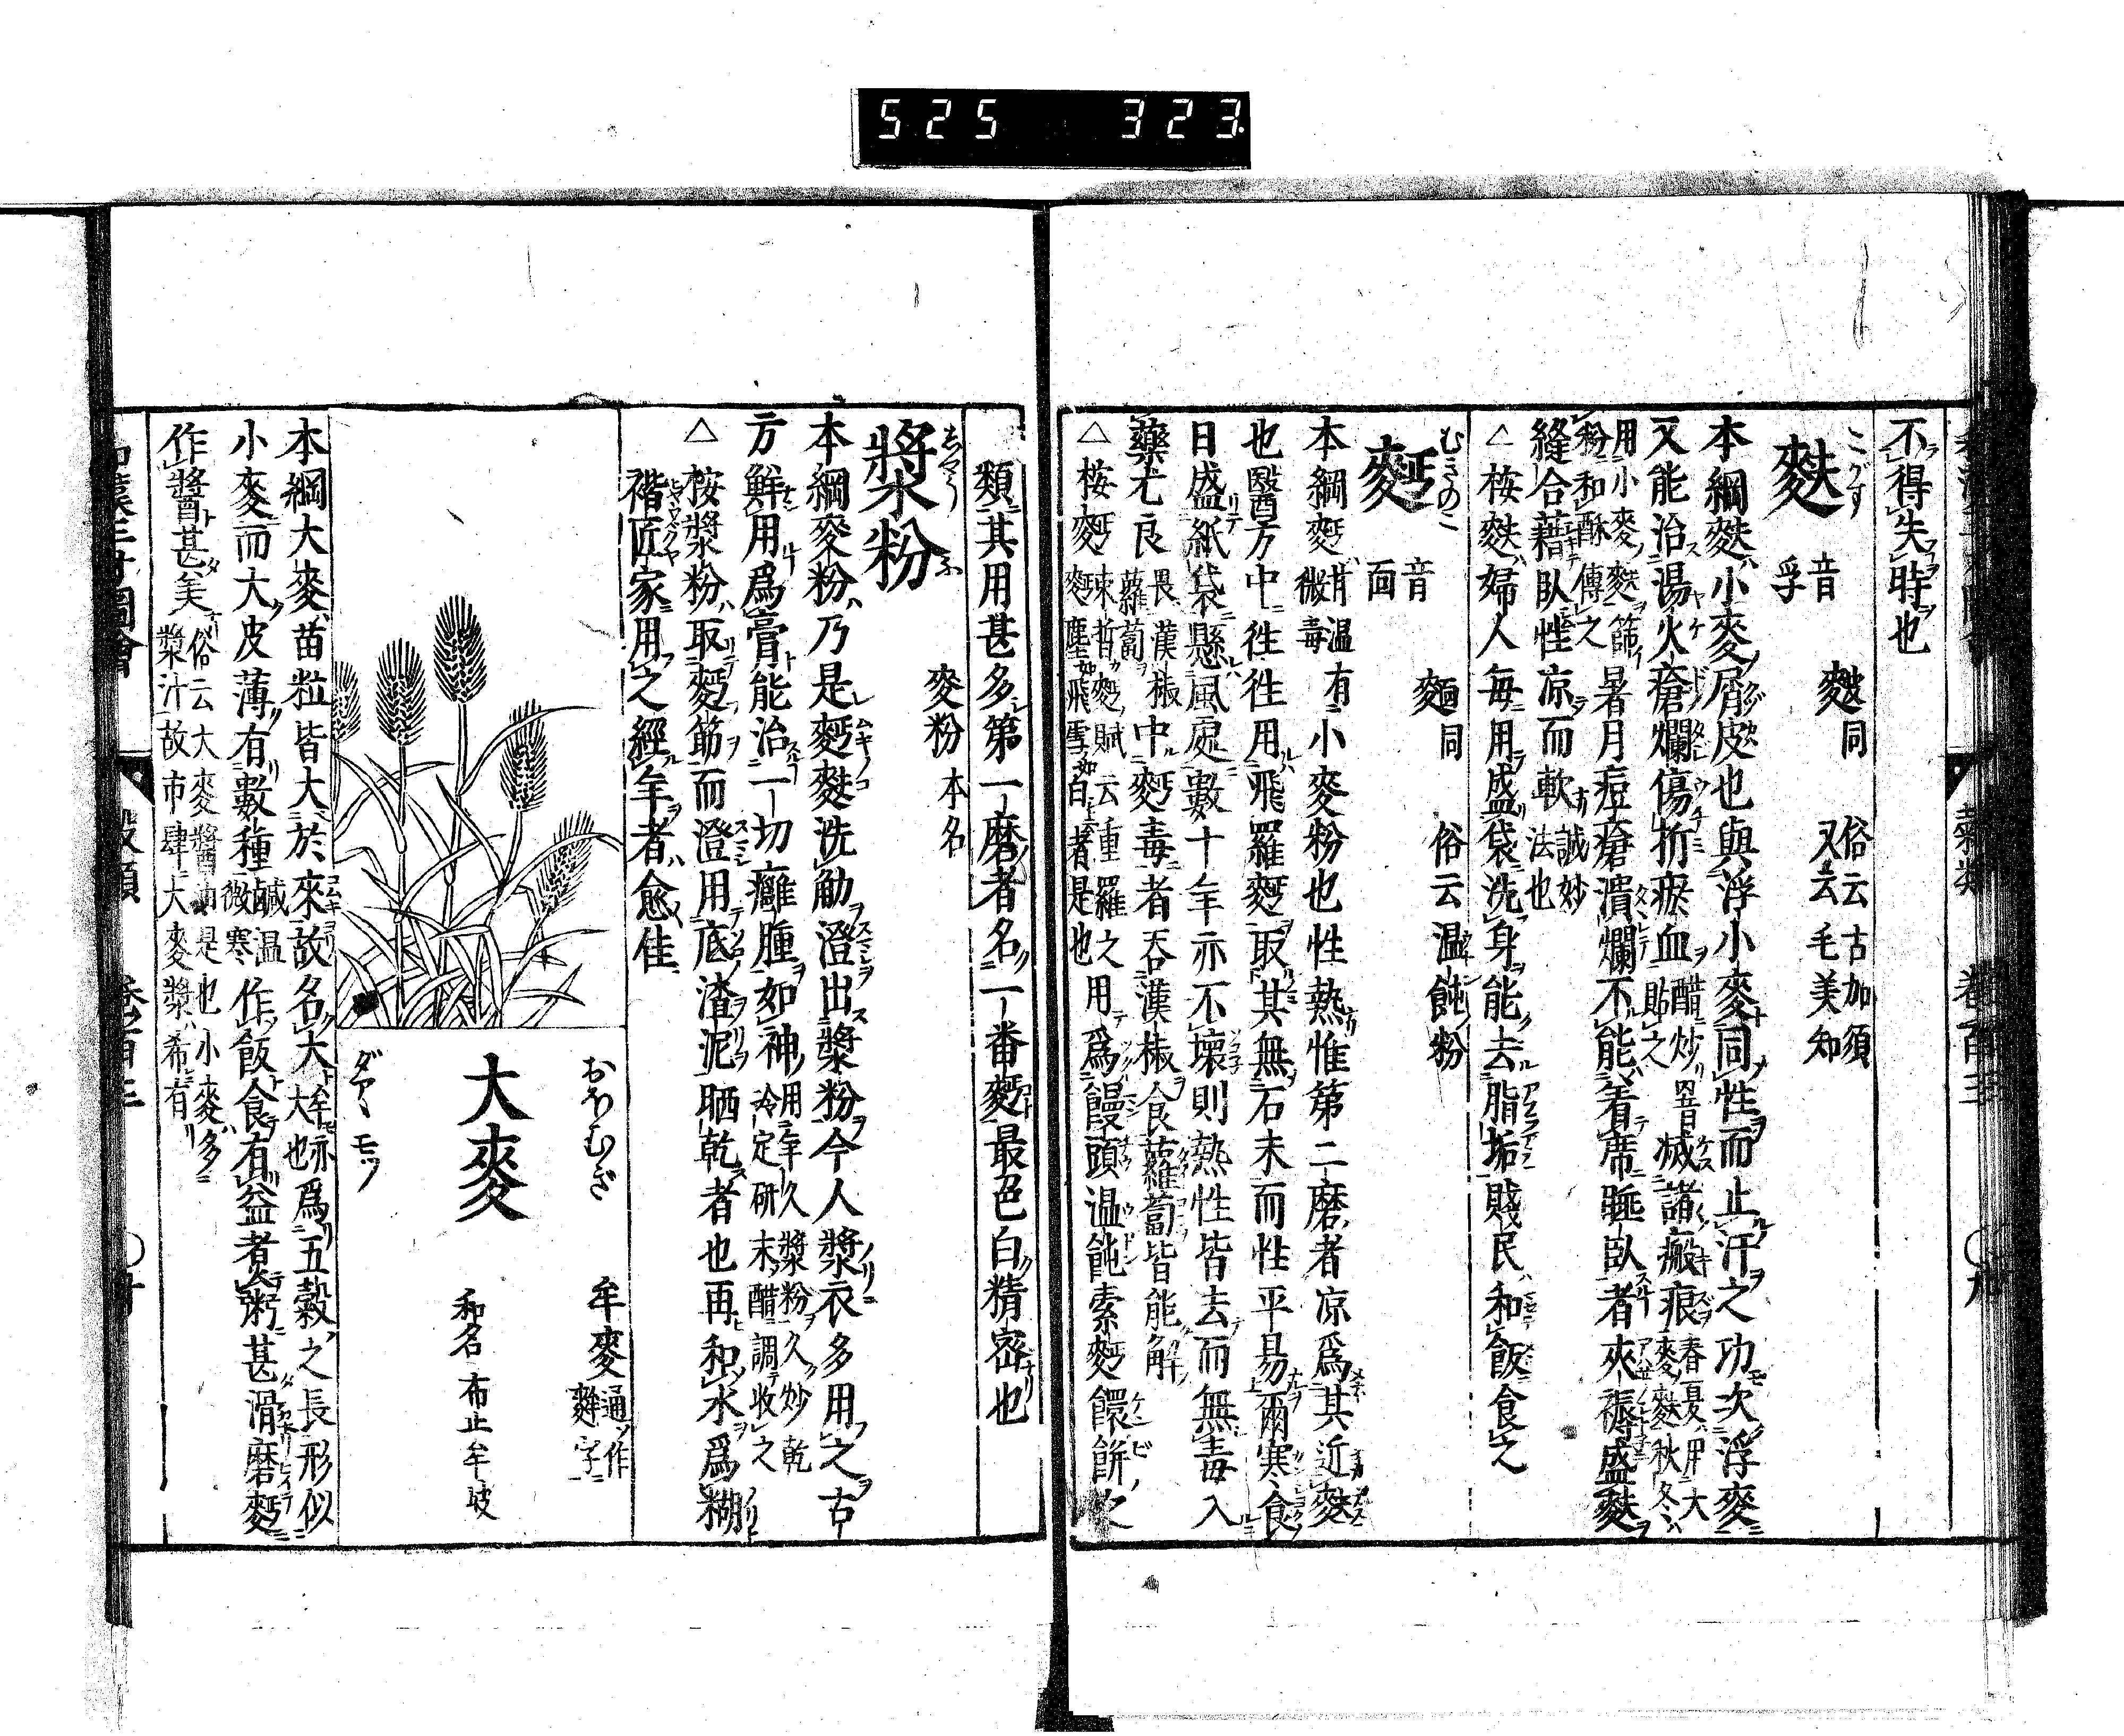 525 323
不得失時也
麩
こがす
音孚
麬同
俗云古加須
又云毛美知
本綱麩小麥屑皮也與浮小麥同性而止汗之功次浮麥
又能治湯火瘡爛傷折瘀血醋炒貼之 滅諸瘢痕春夏用大麥麩秋冬
用小麥麩篩粉和酥傳之 暑月痘瘡潰爛不能着席睡臥者夾褥盛麩
縫合藉臥性凉而軟誠妙法也
△桉麩婦人毎用盛袋洗身能去脂垢賤民和飯食之
麪
むきのこ
音面
麵同
俗云温飩粉
本綱麪甘温微毒有小麥粉也性熱惟第二磨者凉爲其近麩
也醫方中徃徃用飛羅麪取其無石末而性平易爾寒食
日盛紙袋懸風處數十年亦不壞則熱性皆去而無毒入
藥尤良畏漢椒蘿蔔 中麪毒者呑漢椒食蘿蔔皆能解
△桉麪束晳麪賦云重羅之麪塵如飛雪如白者是也用爲饅頭温飩索麪餅之
類其用甚多第一磨者名一番麪最色白精密也
漿粉
しやうふ
麥粉 本名
本綱麥粉乃是麪麩洗觔澄出漿粉今人漿衣多用之古
方鮮用爲膏能治一切癰腫如神用年久漿粉久炒乾冷定研末醋調收之
△桉漿粉取麪筋而澄用底渣泥晒乾者也再和水爲糊
褙匠家用之經年者愈佳
大麥
おほむぎ
ダアヽ モツ
牟麥
通作麰字
和名布止牟岐
本綱大麥苗粒皆大於來故名大牟亦大也爲五穀之長形似
小麥而大皮薄有數種鹹温微寒作飯食有益煮粥甚滑磨麪
作醬甚美俗云大麥醬油是也小麥多漿汁故市肆大麥漿希有
和漢三才圖會 穀類 卷百三